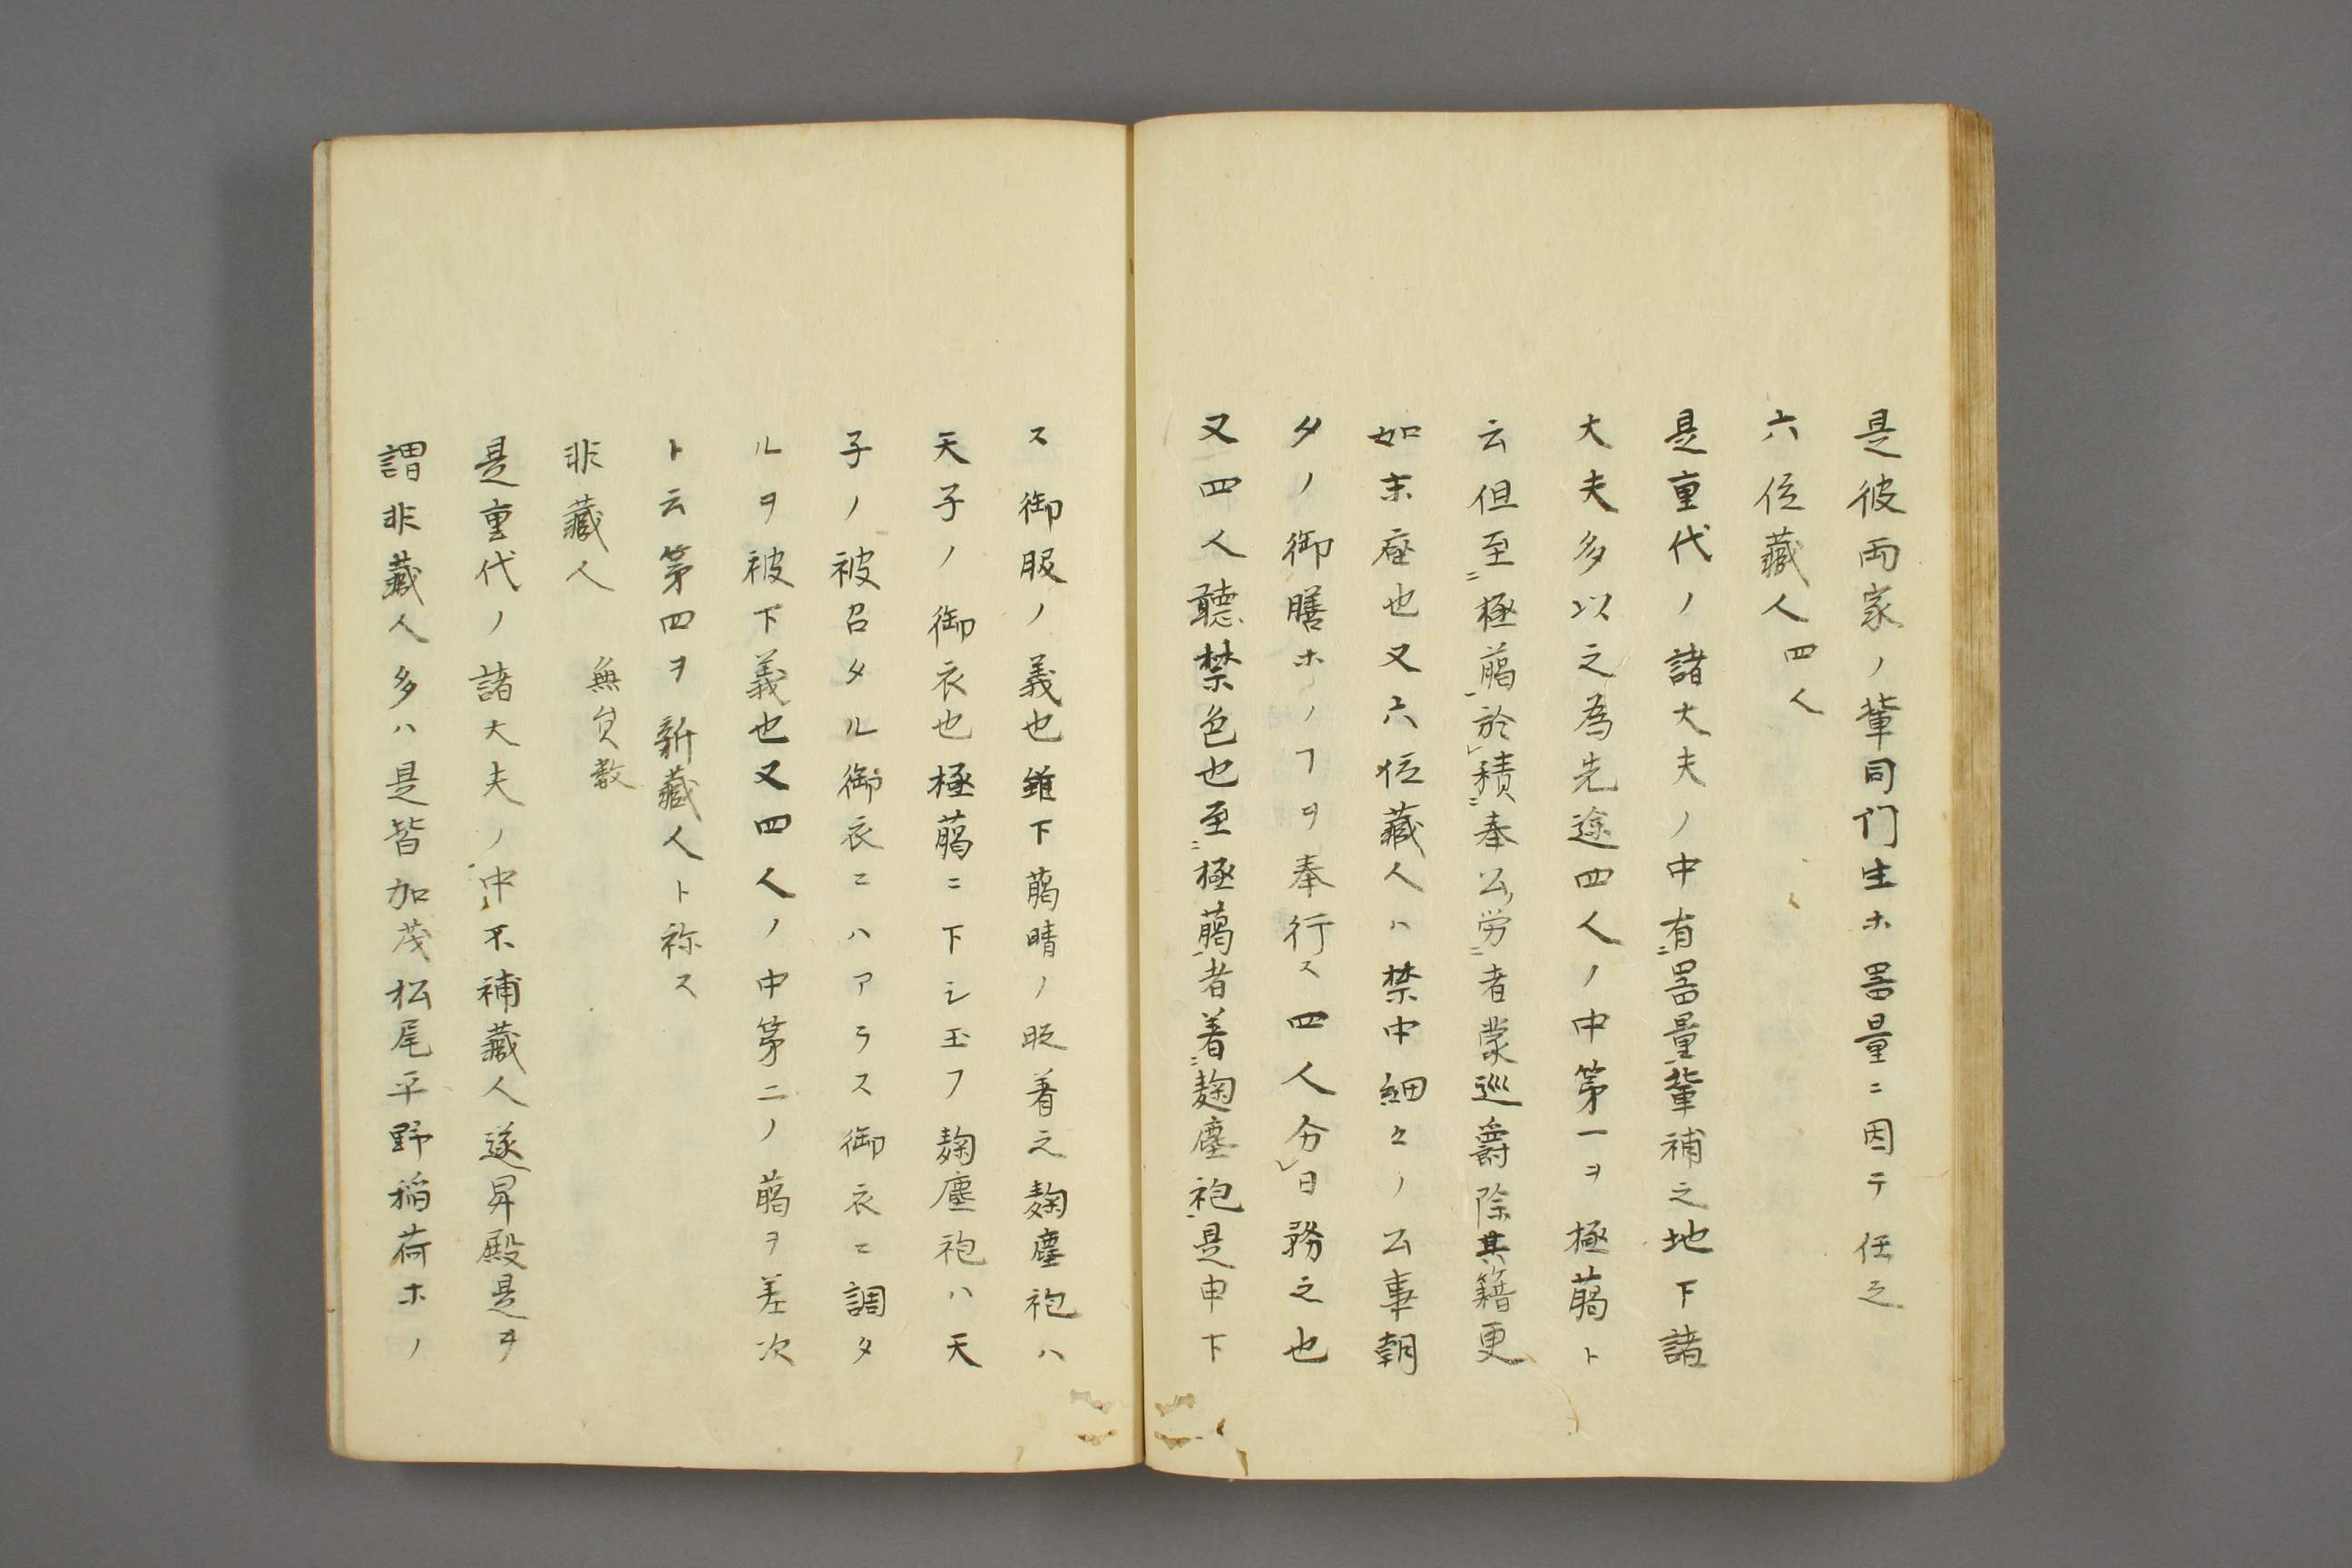 是彼両家ノ輩同门生ホ器量ニ因テ任之
六位藏人四人
是重代ノ諸大夫ノ中有ニ器量輩補之地下諸
大夫多以之為先途四人ノ中第一ヲ極﨟ト
云但至ニ極﨟於積ニ奉公労ニ者蒙巡爵除其籍更
如末座也又六位藏人ハ禁中細々ノ公事朝
夕ノ御膳ホノヿヲ奉行ス四人分日務之也
又四人聽禁色也至ニ極﨟者着ニ麹塵袍是申下
ス御服ノ義也雖下﨟晴ノ時着之麹塵袍ハ
天子ノ御衣也極﨟ニ下シ玉フ麹塵袍ハ天
子ノ被召タル御衣ニハアラス御衣ニ調タ
ルヲ被下義也又四人ノ中第二ノ﨟ヲ差次
ト云第四ヲ新藏人ト称ス
非藏人 無員数
是重代ノ諸大夫ノ中不補藏人遂昇殿是ヲ
謂非藏人多ハ是皆加茂松尾平野稲荷ホノ